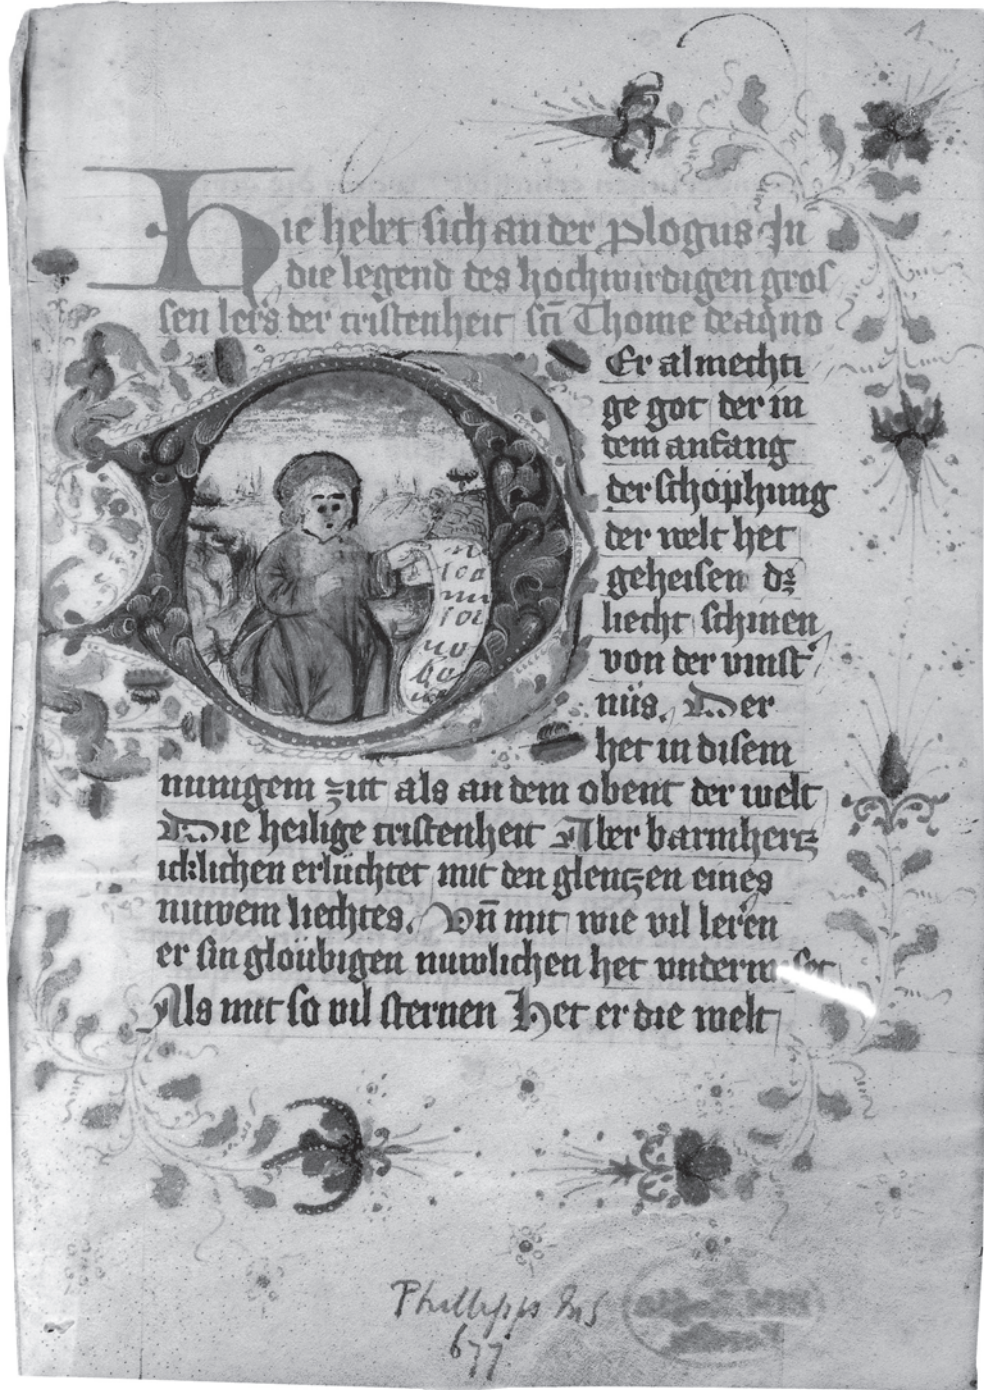 Hie hebet sich an der Plogus In
die legend des hochwirdigen gros
sen lers der cristenheit scī Thome de aqno
Er almechti
ge got der in
dem anfang
der schöphung
der welt het
geheisen dz
liecht schinen
von der vinst
nüs. Der
het in disem
nunigem zit als an dem obent der welt
Die heilige cristenheit Aber barmhertz
icklichen erlüchtet mit den glentzen eines
nuwem liechtes. Vn̄ mit wie vil leren
er sin gloübigen nuwlichen het underwiset
Als mit so vil sternen Het er die welt
Phillipps MS
677